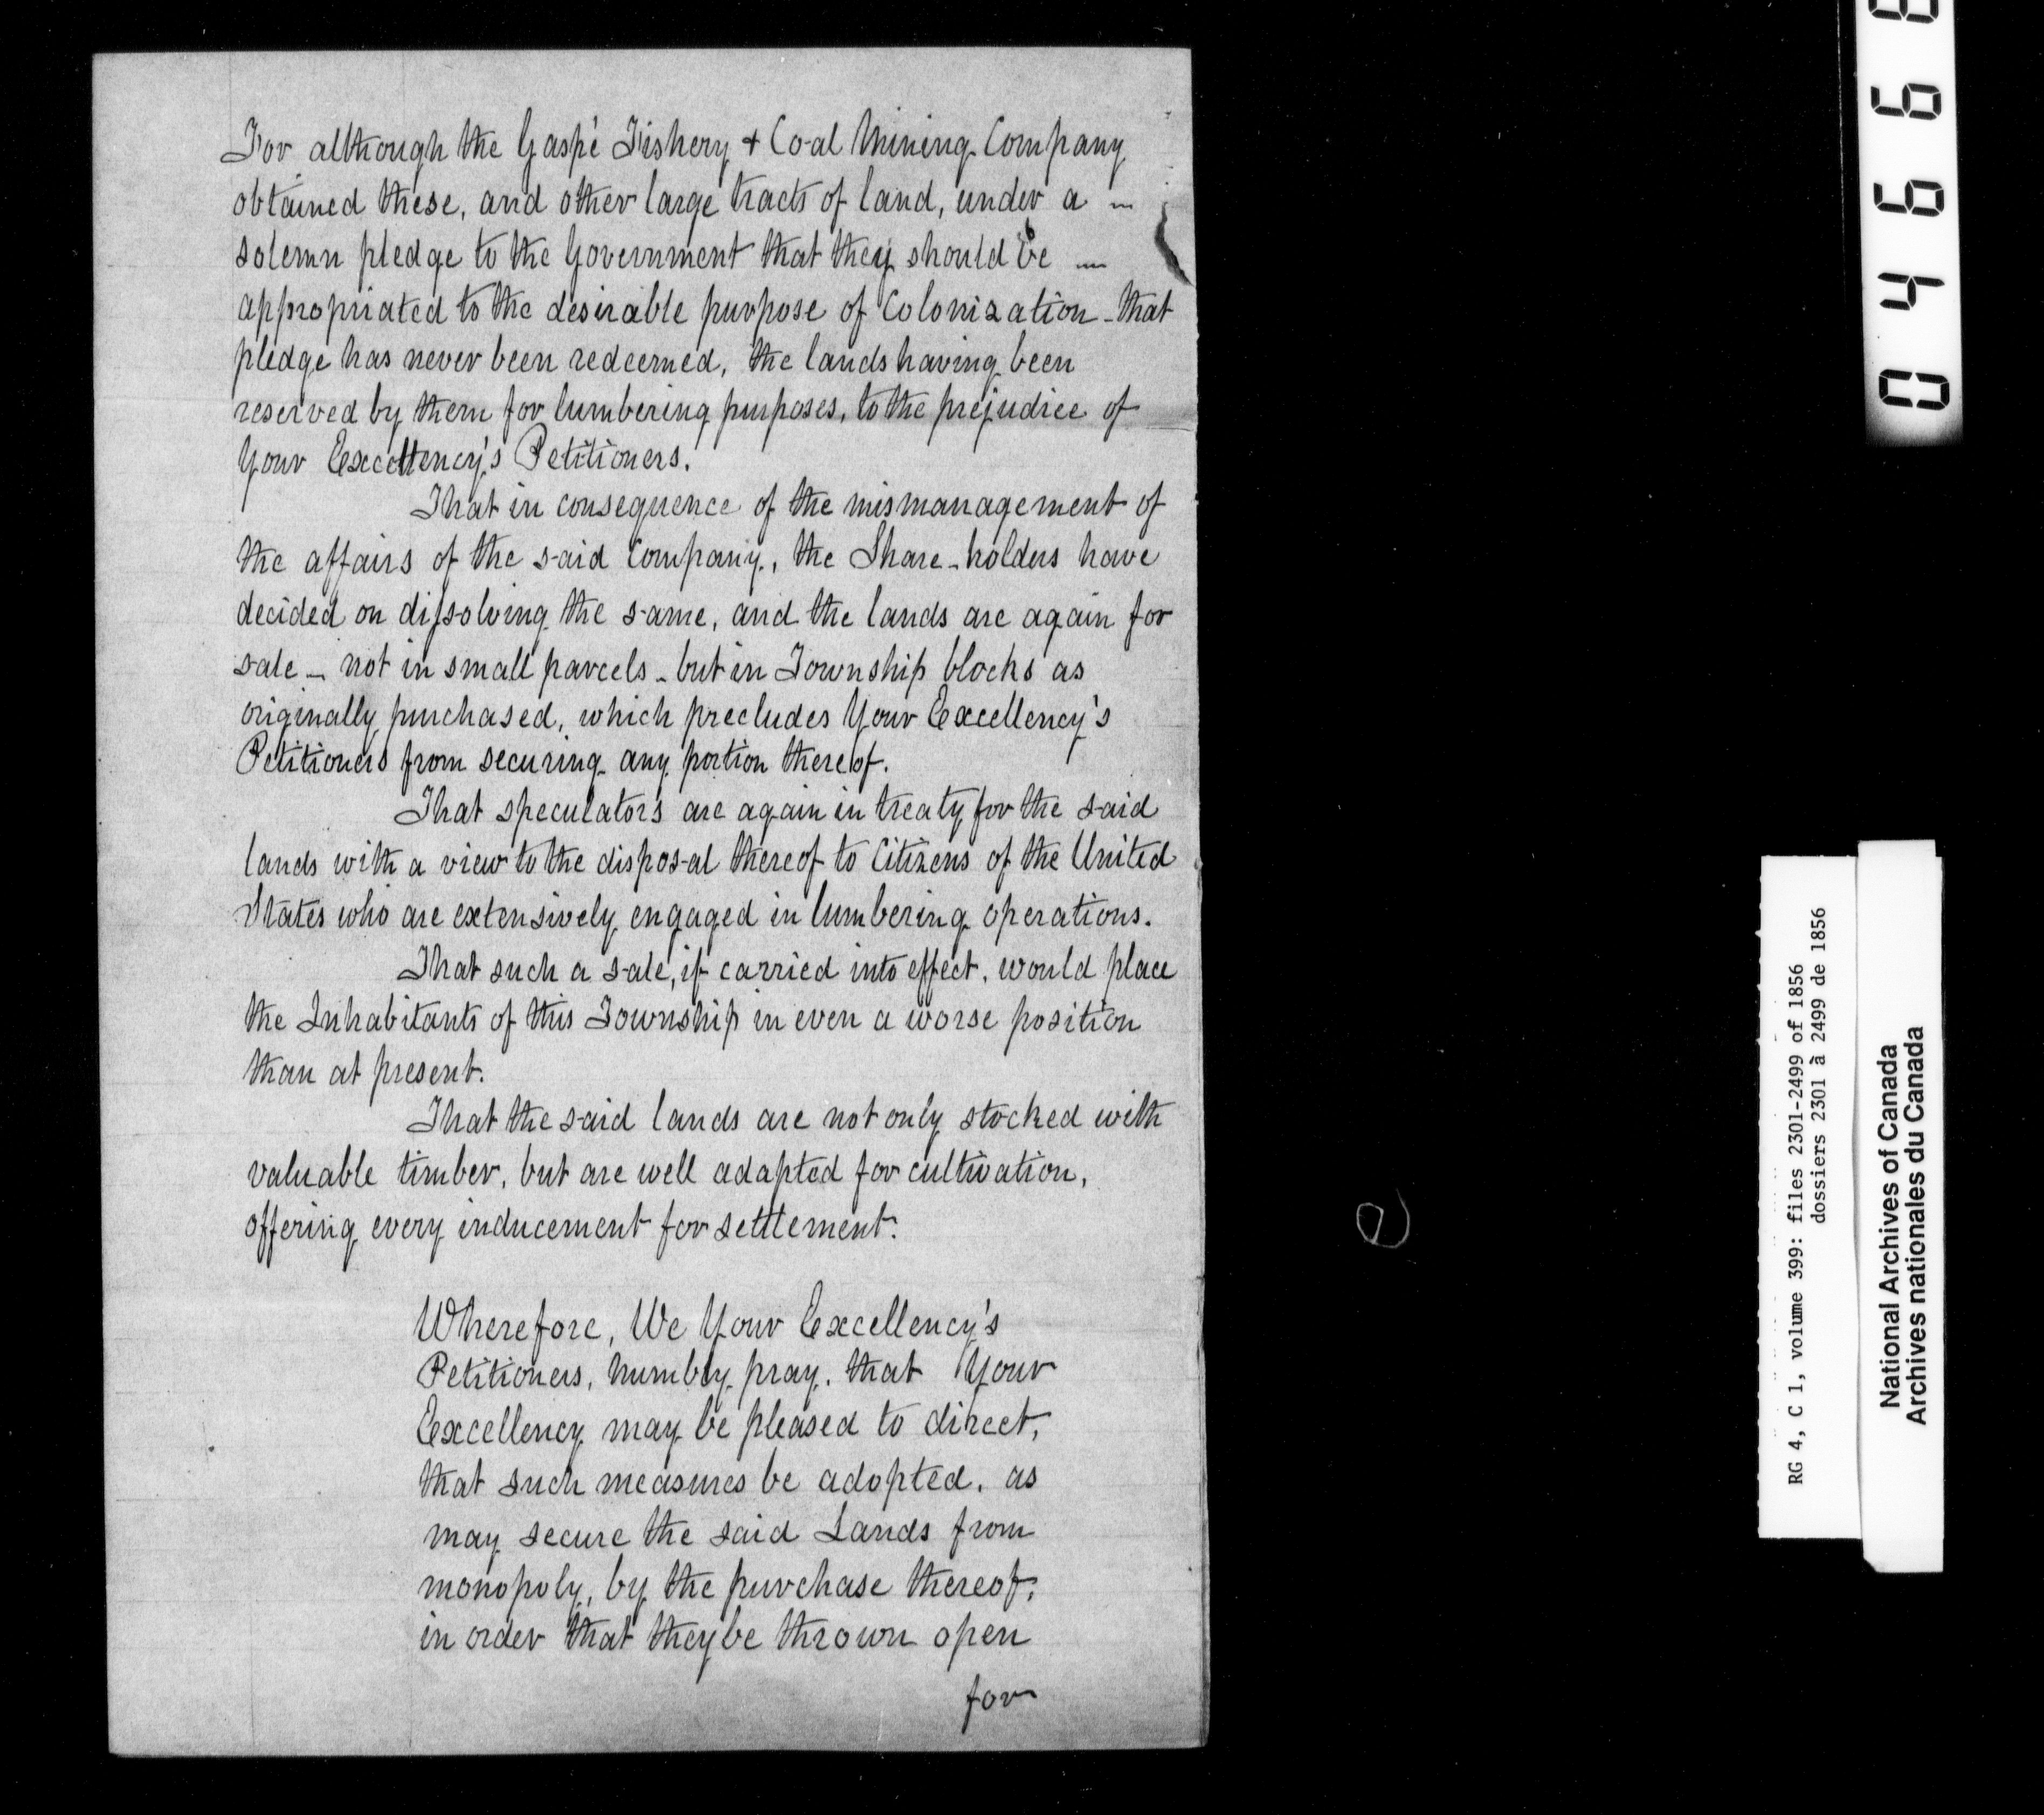 For although the Gaspé Fishery + Coal Mining Company
obtained these, and other large tracts of land, under a
solemn pledge to the Government that they should be
appropriated to the desirable purpose of Colonization - that
pledge has never been redeemed, the lands having been
reserved by them for lumbering purposes, to the prejudice of
Your Excellency's Petitioners.
That in consequence of the mismanagement of
the affairs of the said Company, the Share-holders have
decided on dissolving the same, and the lands are again for
sale - not in small parcels - but in Township blocks as
originally purchased, which precludes Your Excellency's
Petitioners from securing any portion thereof.
That speculators are again in treaty for the said
lands with a view to the disposal thereof to Citizens of the United
States who are extensively engaged in lumbering operations.
That such a sale, if carried into effect, would place
the Inhabitants of this Township in even a worse position
than at present.
That the said lands are not only stocked with
valuable timber, but are well adapted for cultivation,
offering every inducement for settlement.
Wherefore, We Your Excellency's
Petitioners, humbly pray, that Your
Excellency may be pleased to direct,
that such measures be adopted, as
may secure the said Lands from
monopoly, by the purchase thereof,
in order that they be thrown open
for
e
RG 4, C 1, volume 399: files 2301-2499 of 1856
dossiers 2301 à 2499 de 1856
National Archives of Canada
Archives nationales du Canada
0466